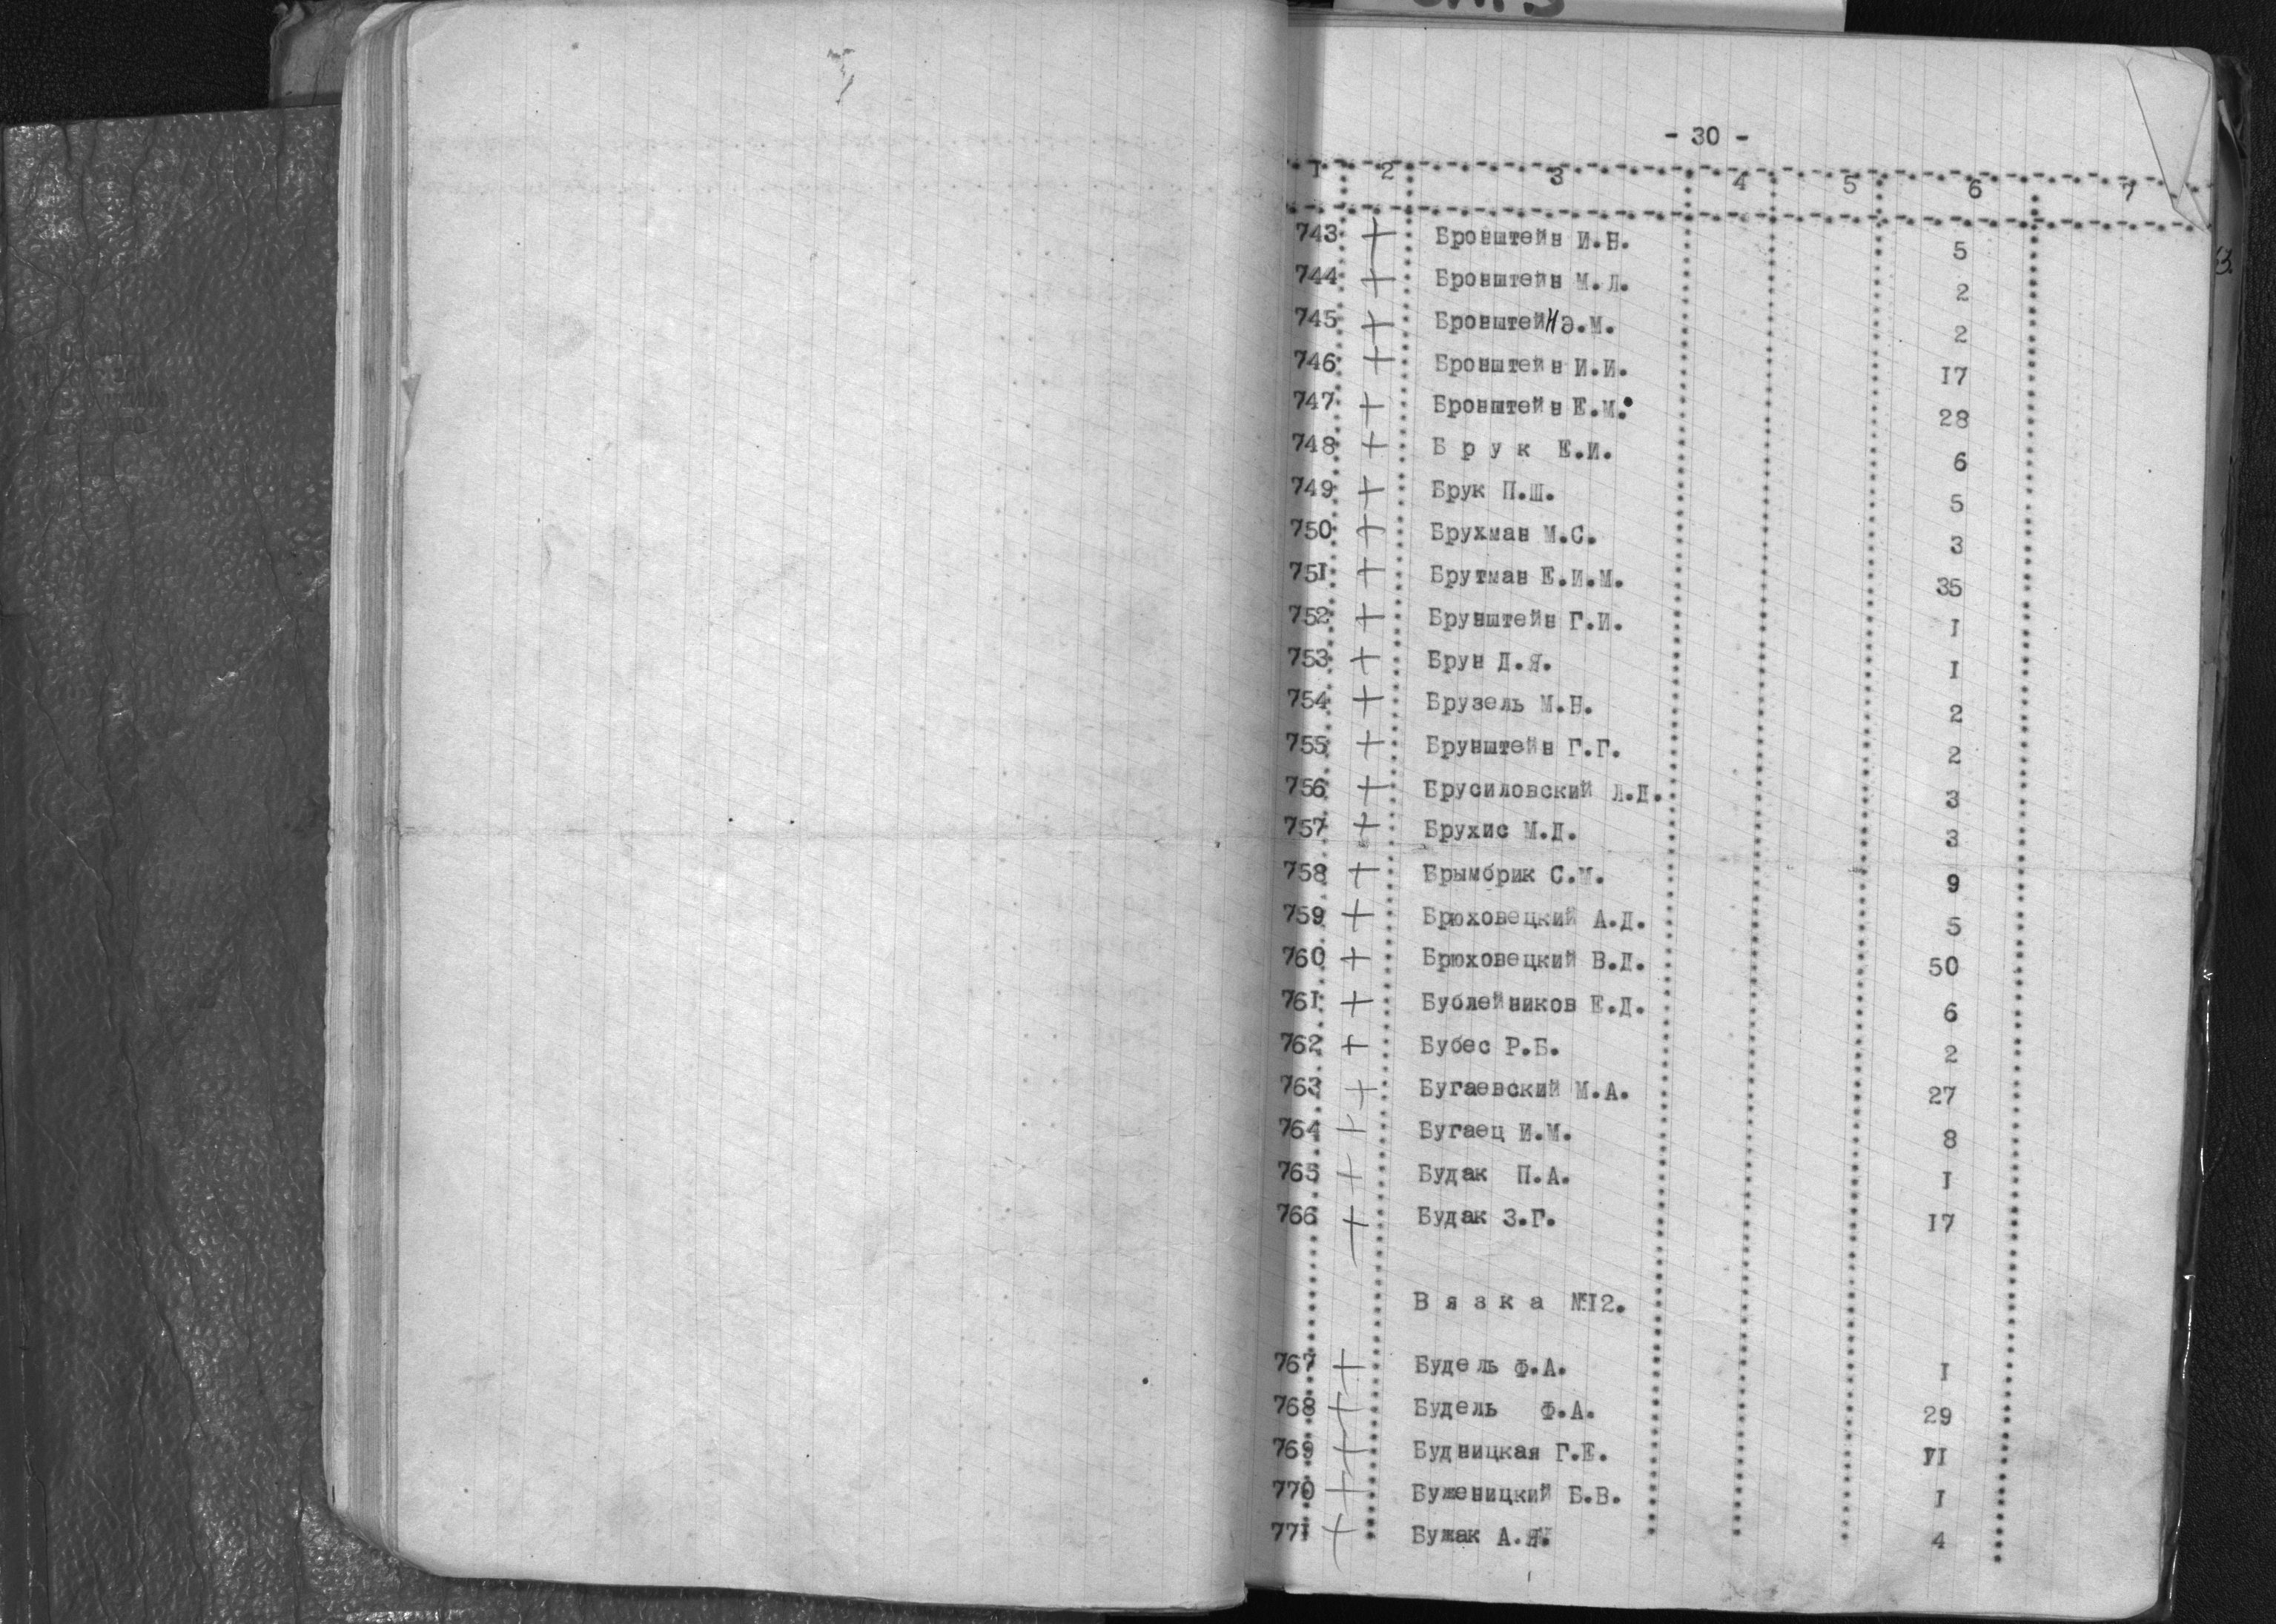 - 30 -
I 2 3 4 5 6 7
743 + Бронштейн И.Н. 5
744 + Бронштейн М.Л. 2
745 + Бронштейн Э.М. 2
746 + Бронштейн И.И. I7
747 + Бронштейн Е.М. 28
748 + Б р у к Е.И. 6
749 + Брук П.Ш. 5
750 + Брухман М.С. 3
75I + Брутман Е.И.М. 35
752 + Брунштейн Г.И. I
753 + Брун Д.Я. I
754 + Брузель М.Н. 2
755 + Брунштейн Г.Г. 2
756 + Брусиловский Л.Д. 3
757 + Брухис М.Д. 3
758 + Брымбрик С.М. 9
759 + Брюховецкий А.Д. 5
760 + Брюховецкий В.Д. 50
76I + Бублейников Е.Д. 6
762 + Бубес Р.Б. 2
763 + Бугаевский М.А. 27
764 + Бугаец И.М. 8
765 + Будак П.А. I
766 + Будак З.Г. I7
В я з к а №I2.
767 + Будель Ф.А. I
768 + Будель Ф.А. 29
769 + Будницкая Г.Е.
770 + Буженицкий Б.В. I
77I + Бужак А.Я. 4